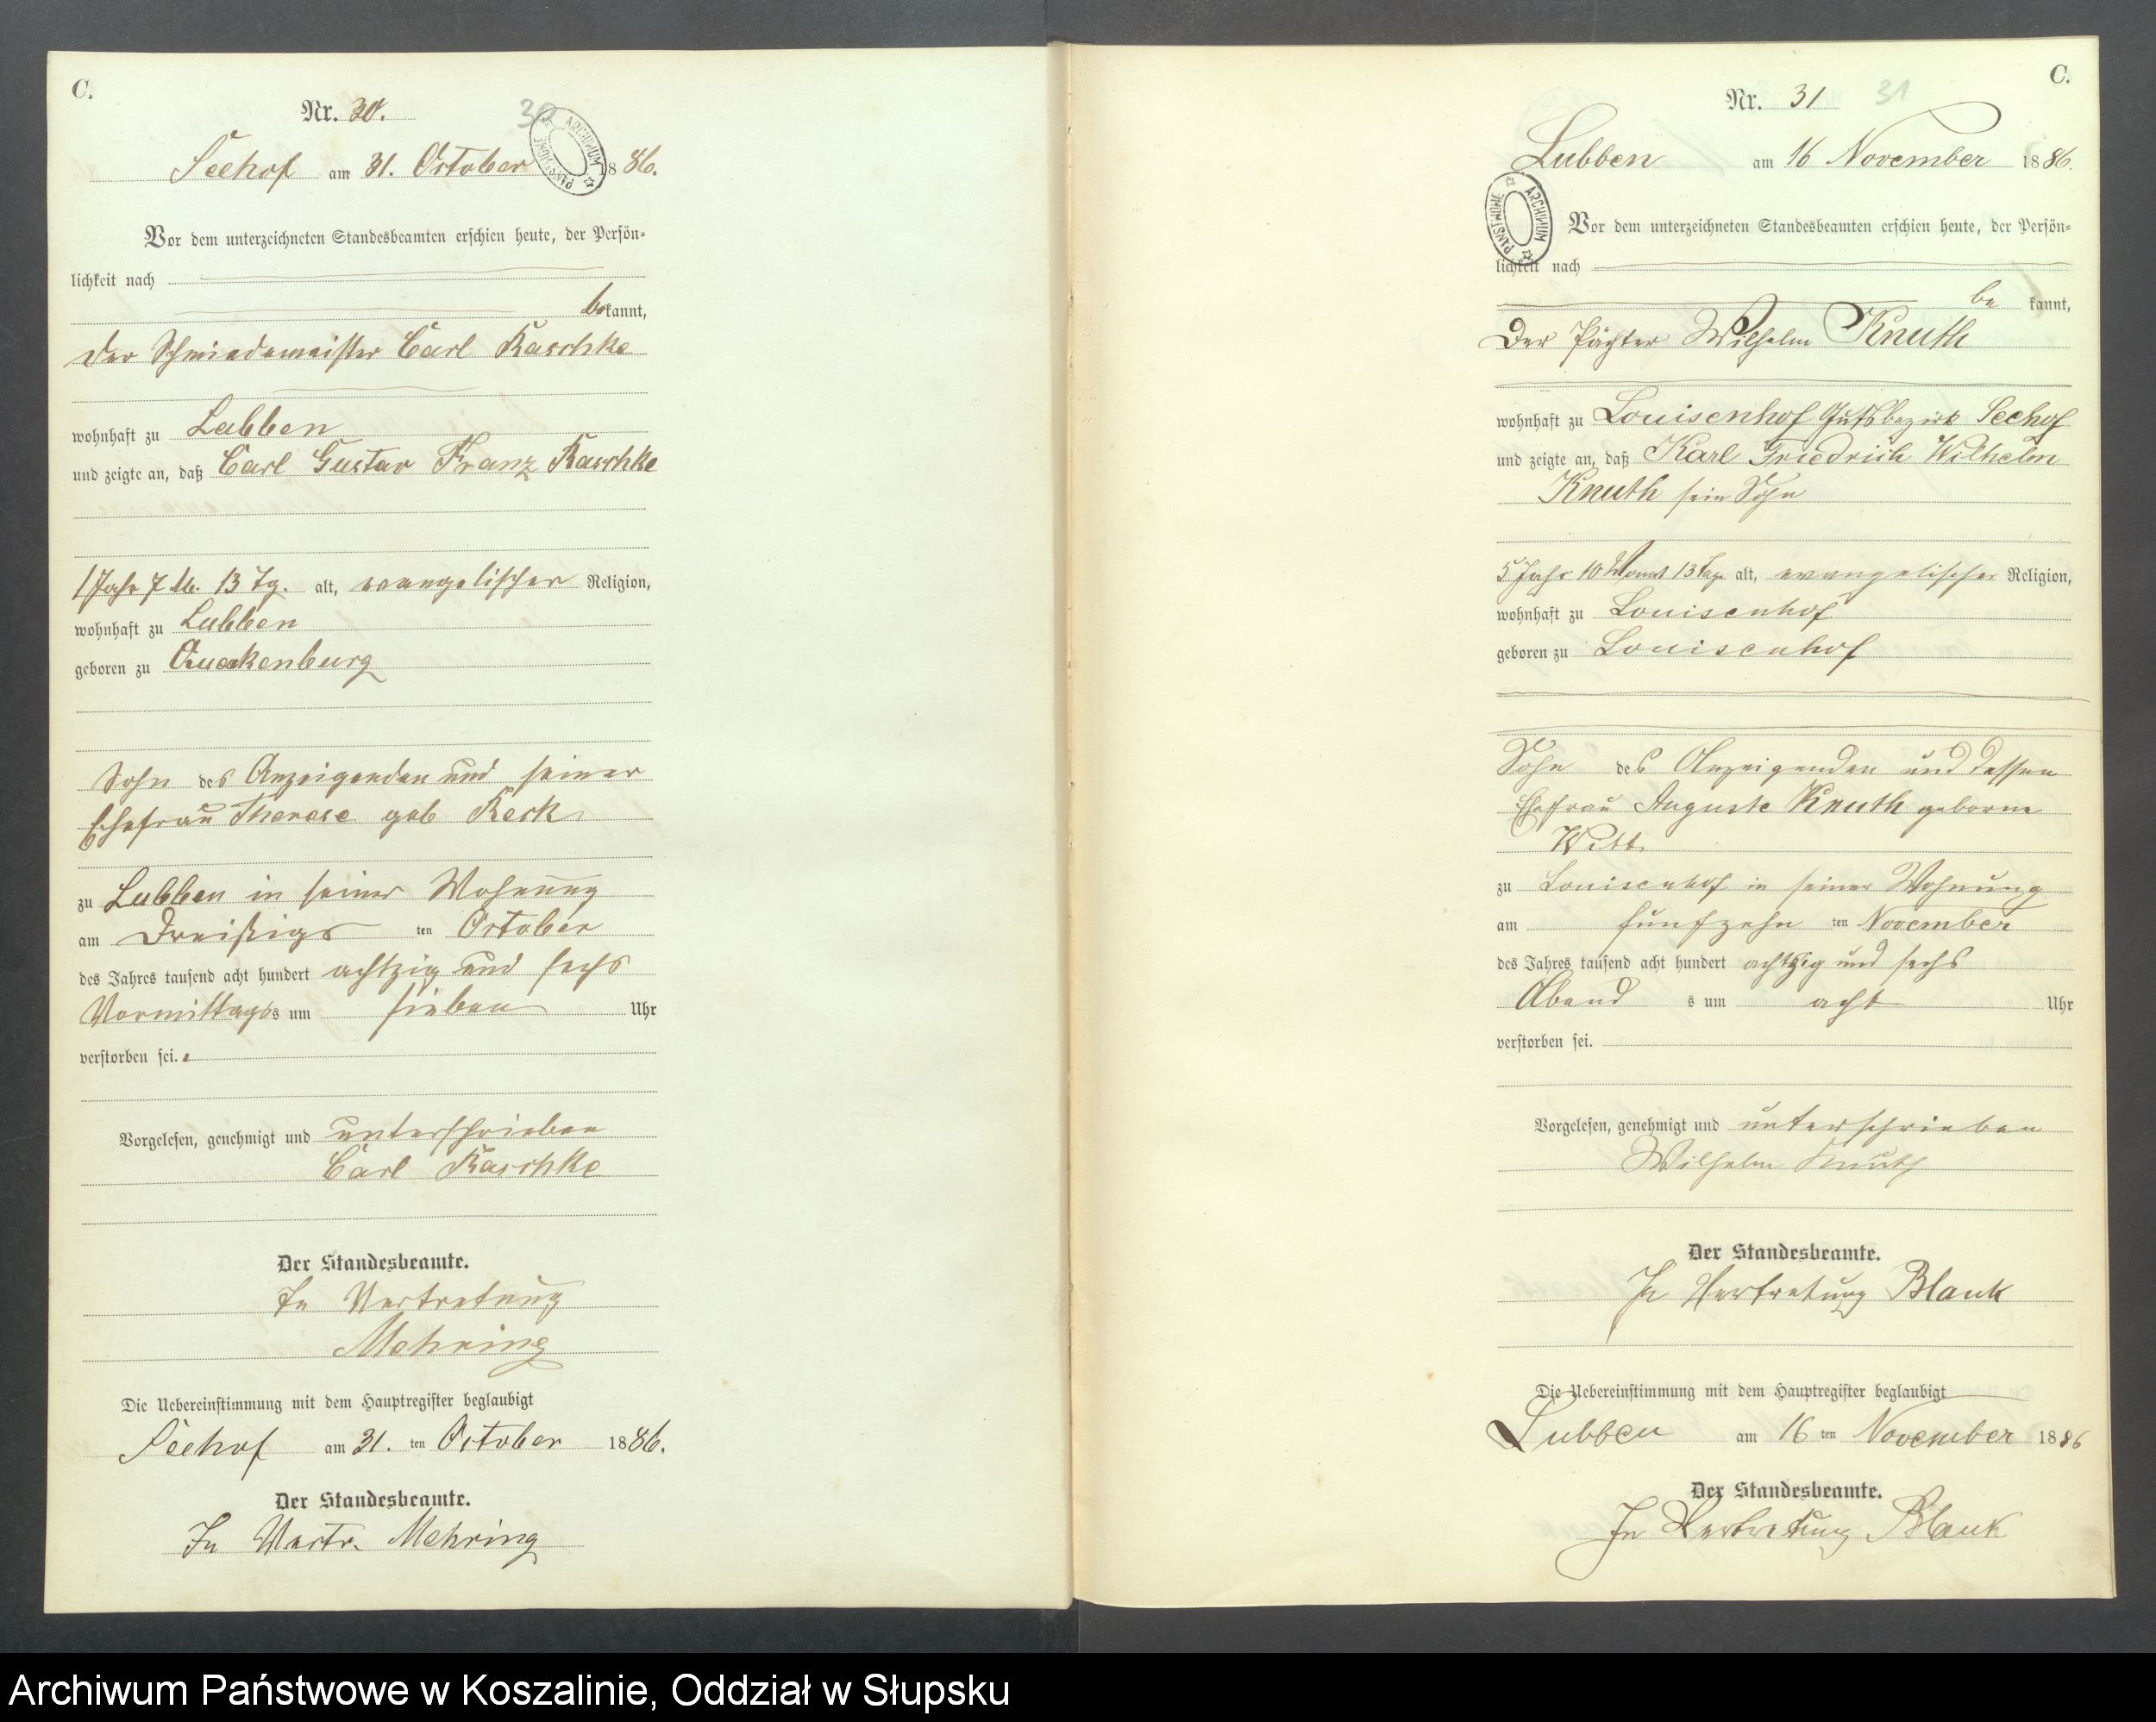 C.
Nr. 30.
30
ARCHIWUM PAŃSTWOWE
Seehof am 31. October 1886.
Vor dem unterzeichneten Standesbeamten erschien heute, der Persön-
lichkeit nach
bekannt,
der Schmiedemeister Carl Raschke
wohnhaft zu Lubben
und zeigte an, daß Carl Gustav Franz Raschke
1 Jahr 7 M. 13 Tg. alt, evangelischer Religion,
wohnhaft zu Lubben
geboren zu Quackenburg
Sohn des Anzeigenden und seiner
Ehefrau Therese geb Reck
zu Lubben in seiner Wohnung
am Dreißigs ten October
des Jahres tausend acht hundert achtzig und sechs
Vormittags um sieben Uhr
verstorben sei.
Vorgelesen, genehmigt und unterschrieben
Carl Raschke
Der Standesbeamte.
In Vertretung
Mehring
Die Uebereinstimmung mit dem Hauptregister beglaubigt
Seehof am 31. ten October 1886.
Der Standesbeamte.
In Vertr. Mehring
C.
Nr. 31
31
Lubben am 16 November 1886.
ARCHIWUM PAŃSTWOWE
Vor dem unterzeichneten Standesbeamten erschien heute, der Persön-
lichkeit nach
be kannt,
Der Pächter Wilhelm Knuth
wohnhaft zu Louisenhof Gutsbezirk Seehof
und zeigte an, daß Karl Friedrich Wilhelm
Knuth sein Sohn
5 Jahr 10 Monat 13 Tage alt, evangelischer Religion,
wohnhaft zu Louisenhof
geboren zu Louisenhof
Sohn des Anzeigenden und dessen
Ehefrau Auguste Knuth geborne
Witt
zu Louisenhof in seiner Wohnung
am funfzehn ten November
des Jahres tausend acht hundert achtzig und sechs
Abend s um acht Uhr
verstorben sei.
Vorgelesen, genehmigt und unterschrieben
Wilhelm Knuth
Der Standesbeamte.
In Vertretung Blank
Die Uebereinstimmung mit dem Hauptregister beglaubigt
Lubben am 16 ten November 1886
Der Standesbeamte.
In Vertretung Blank
Archiwum Państwowe w Koszalinie, Oddział w Słupsku